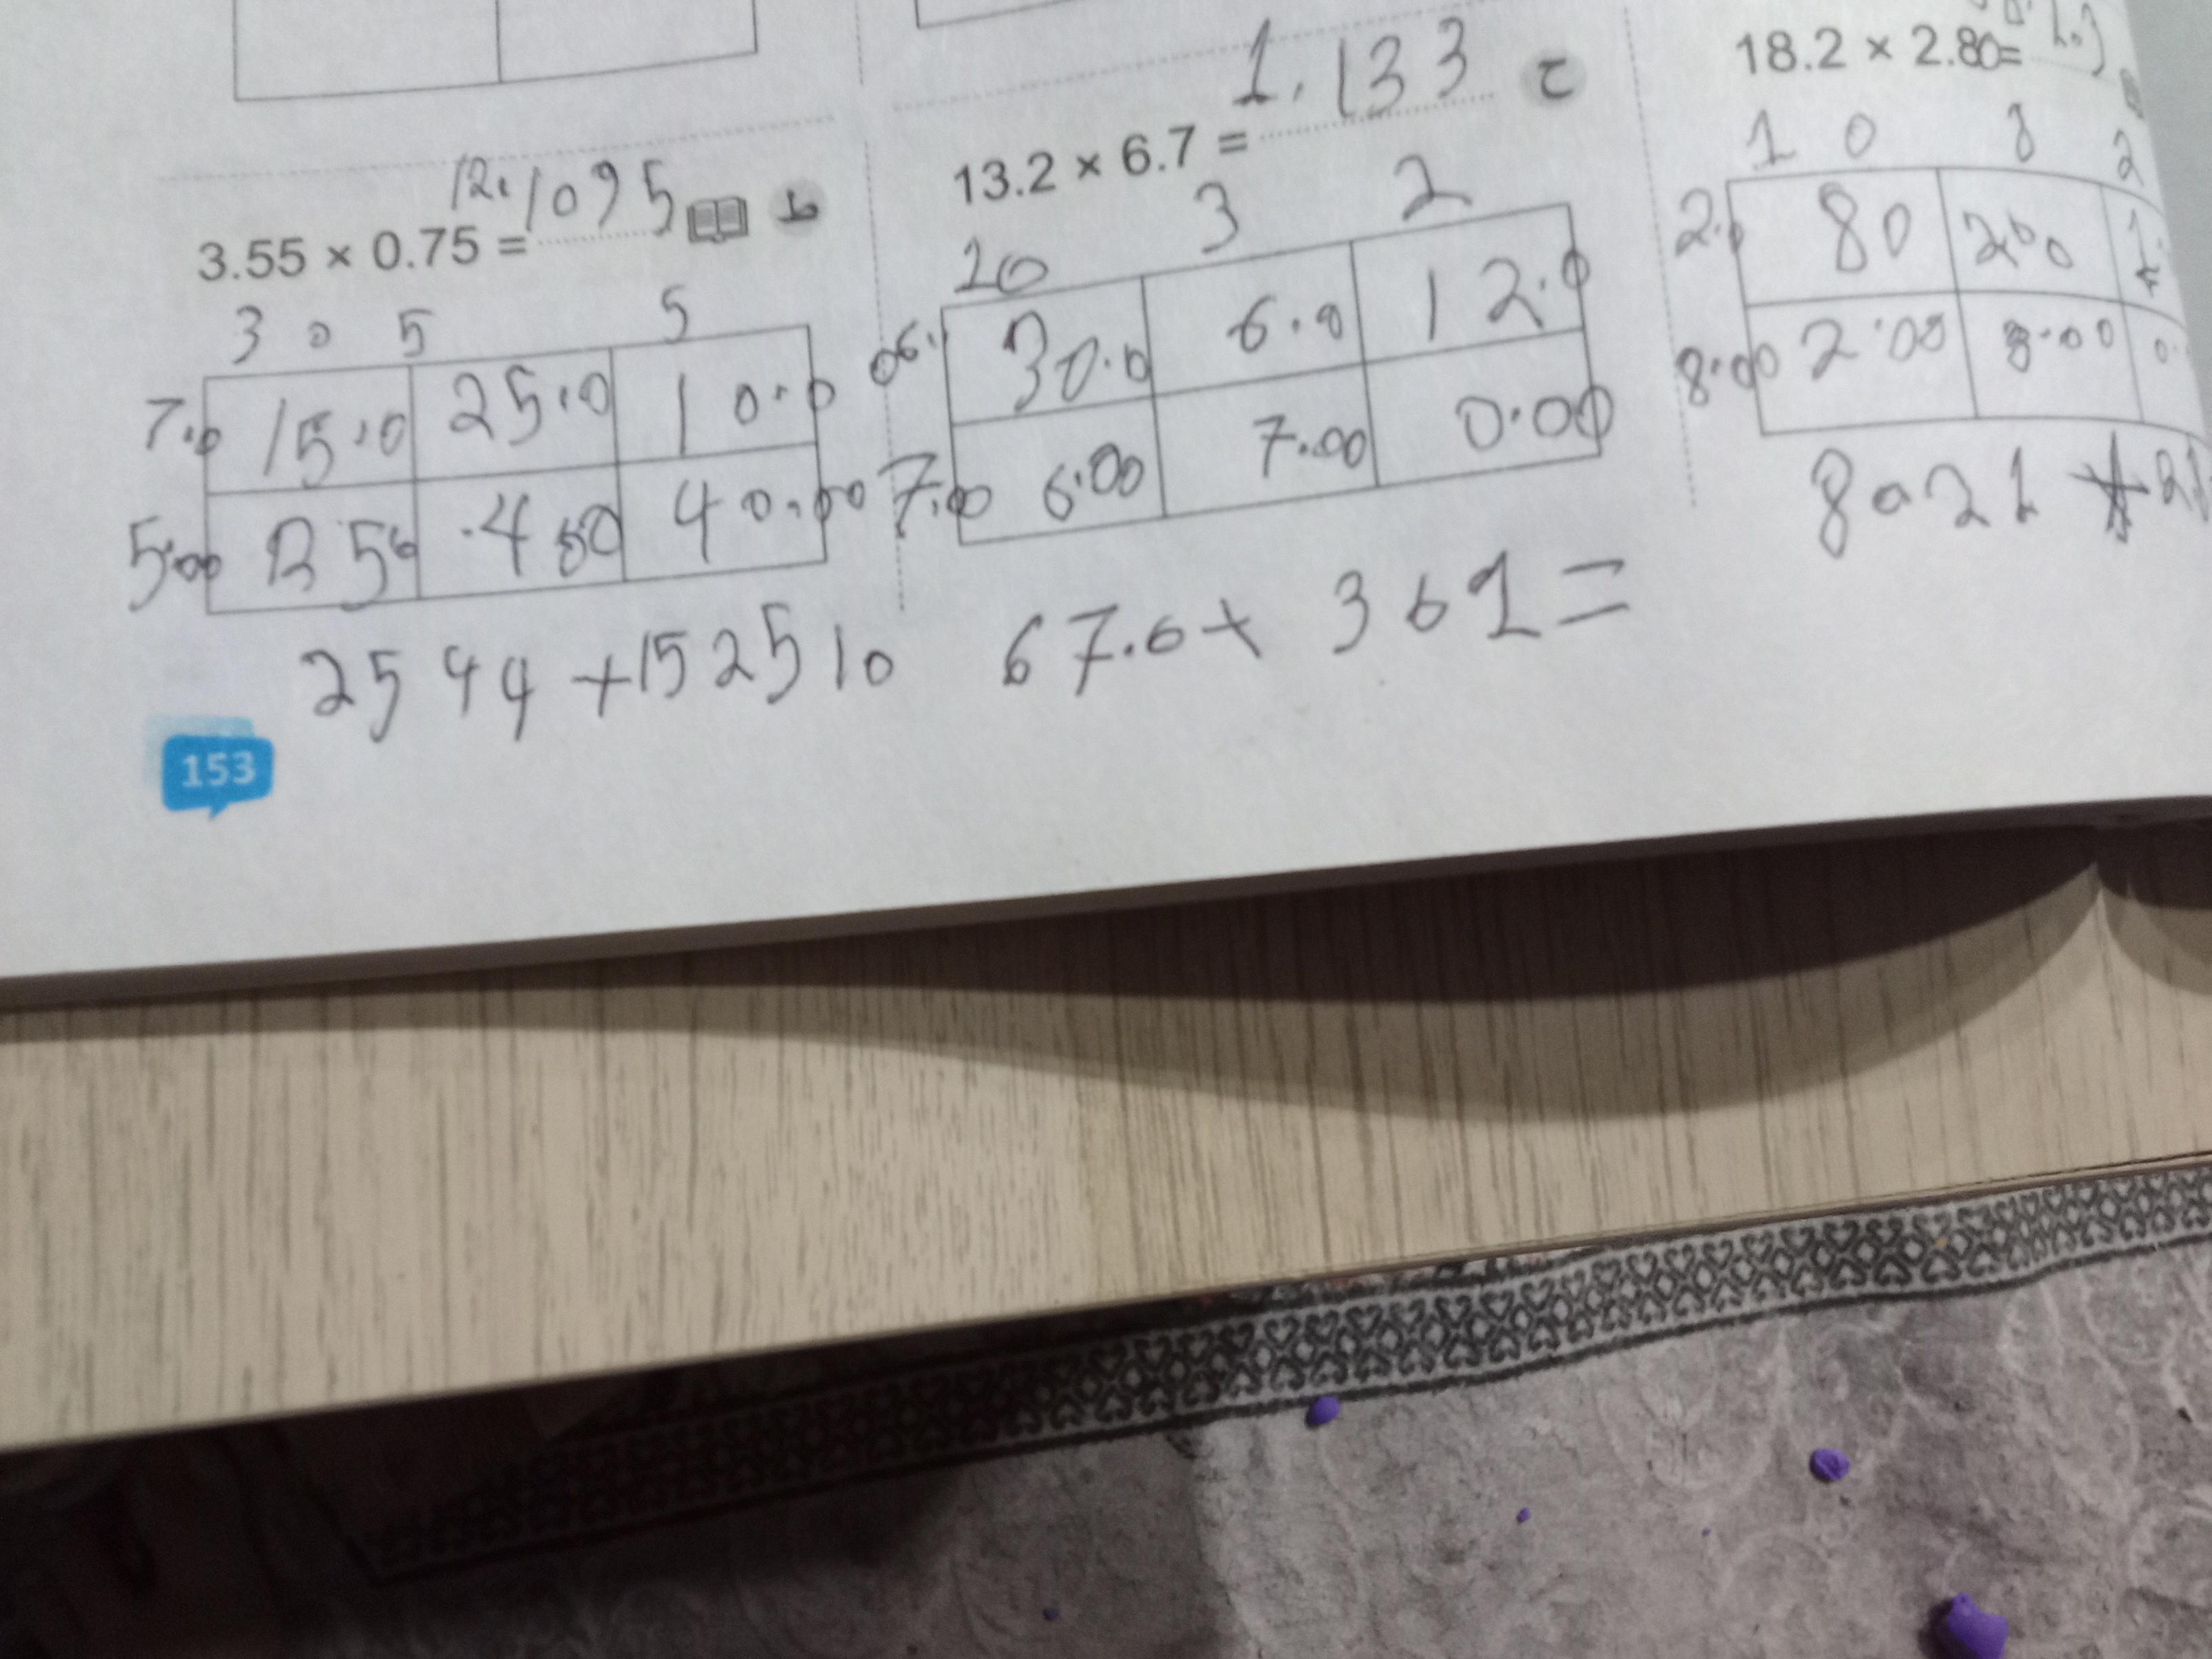 18.2 × 2.80=
1 0 8 2
80 200
8.00 2.00 8.00
8021
1.133 ج
13.2 × 6.7 =
10 3 2
06. 30.0 6.0 12.0
7.00 6.00 7.00 0.00
67.6+ 361=
12.1095
3.55 × 0.75 = ط
3 0 5 5
7.0 15.0 25.0 10.0
5.00 40.00
2544+152510
153